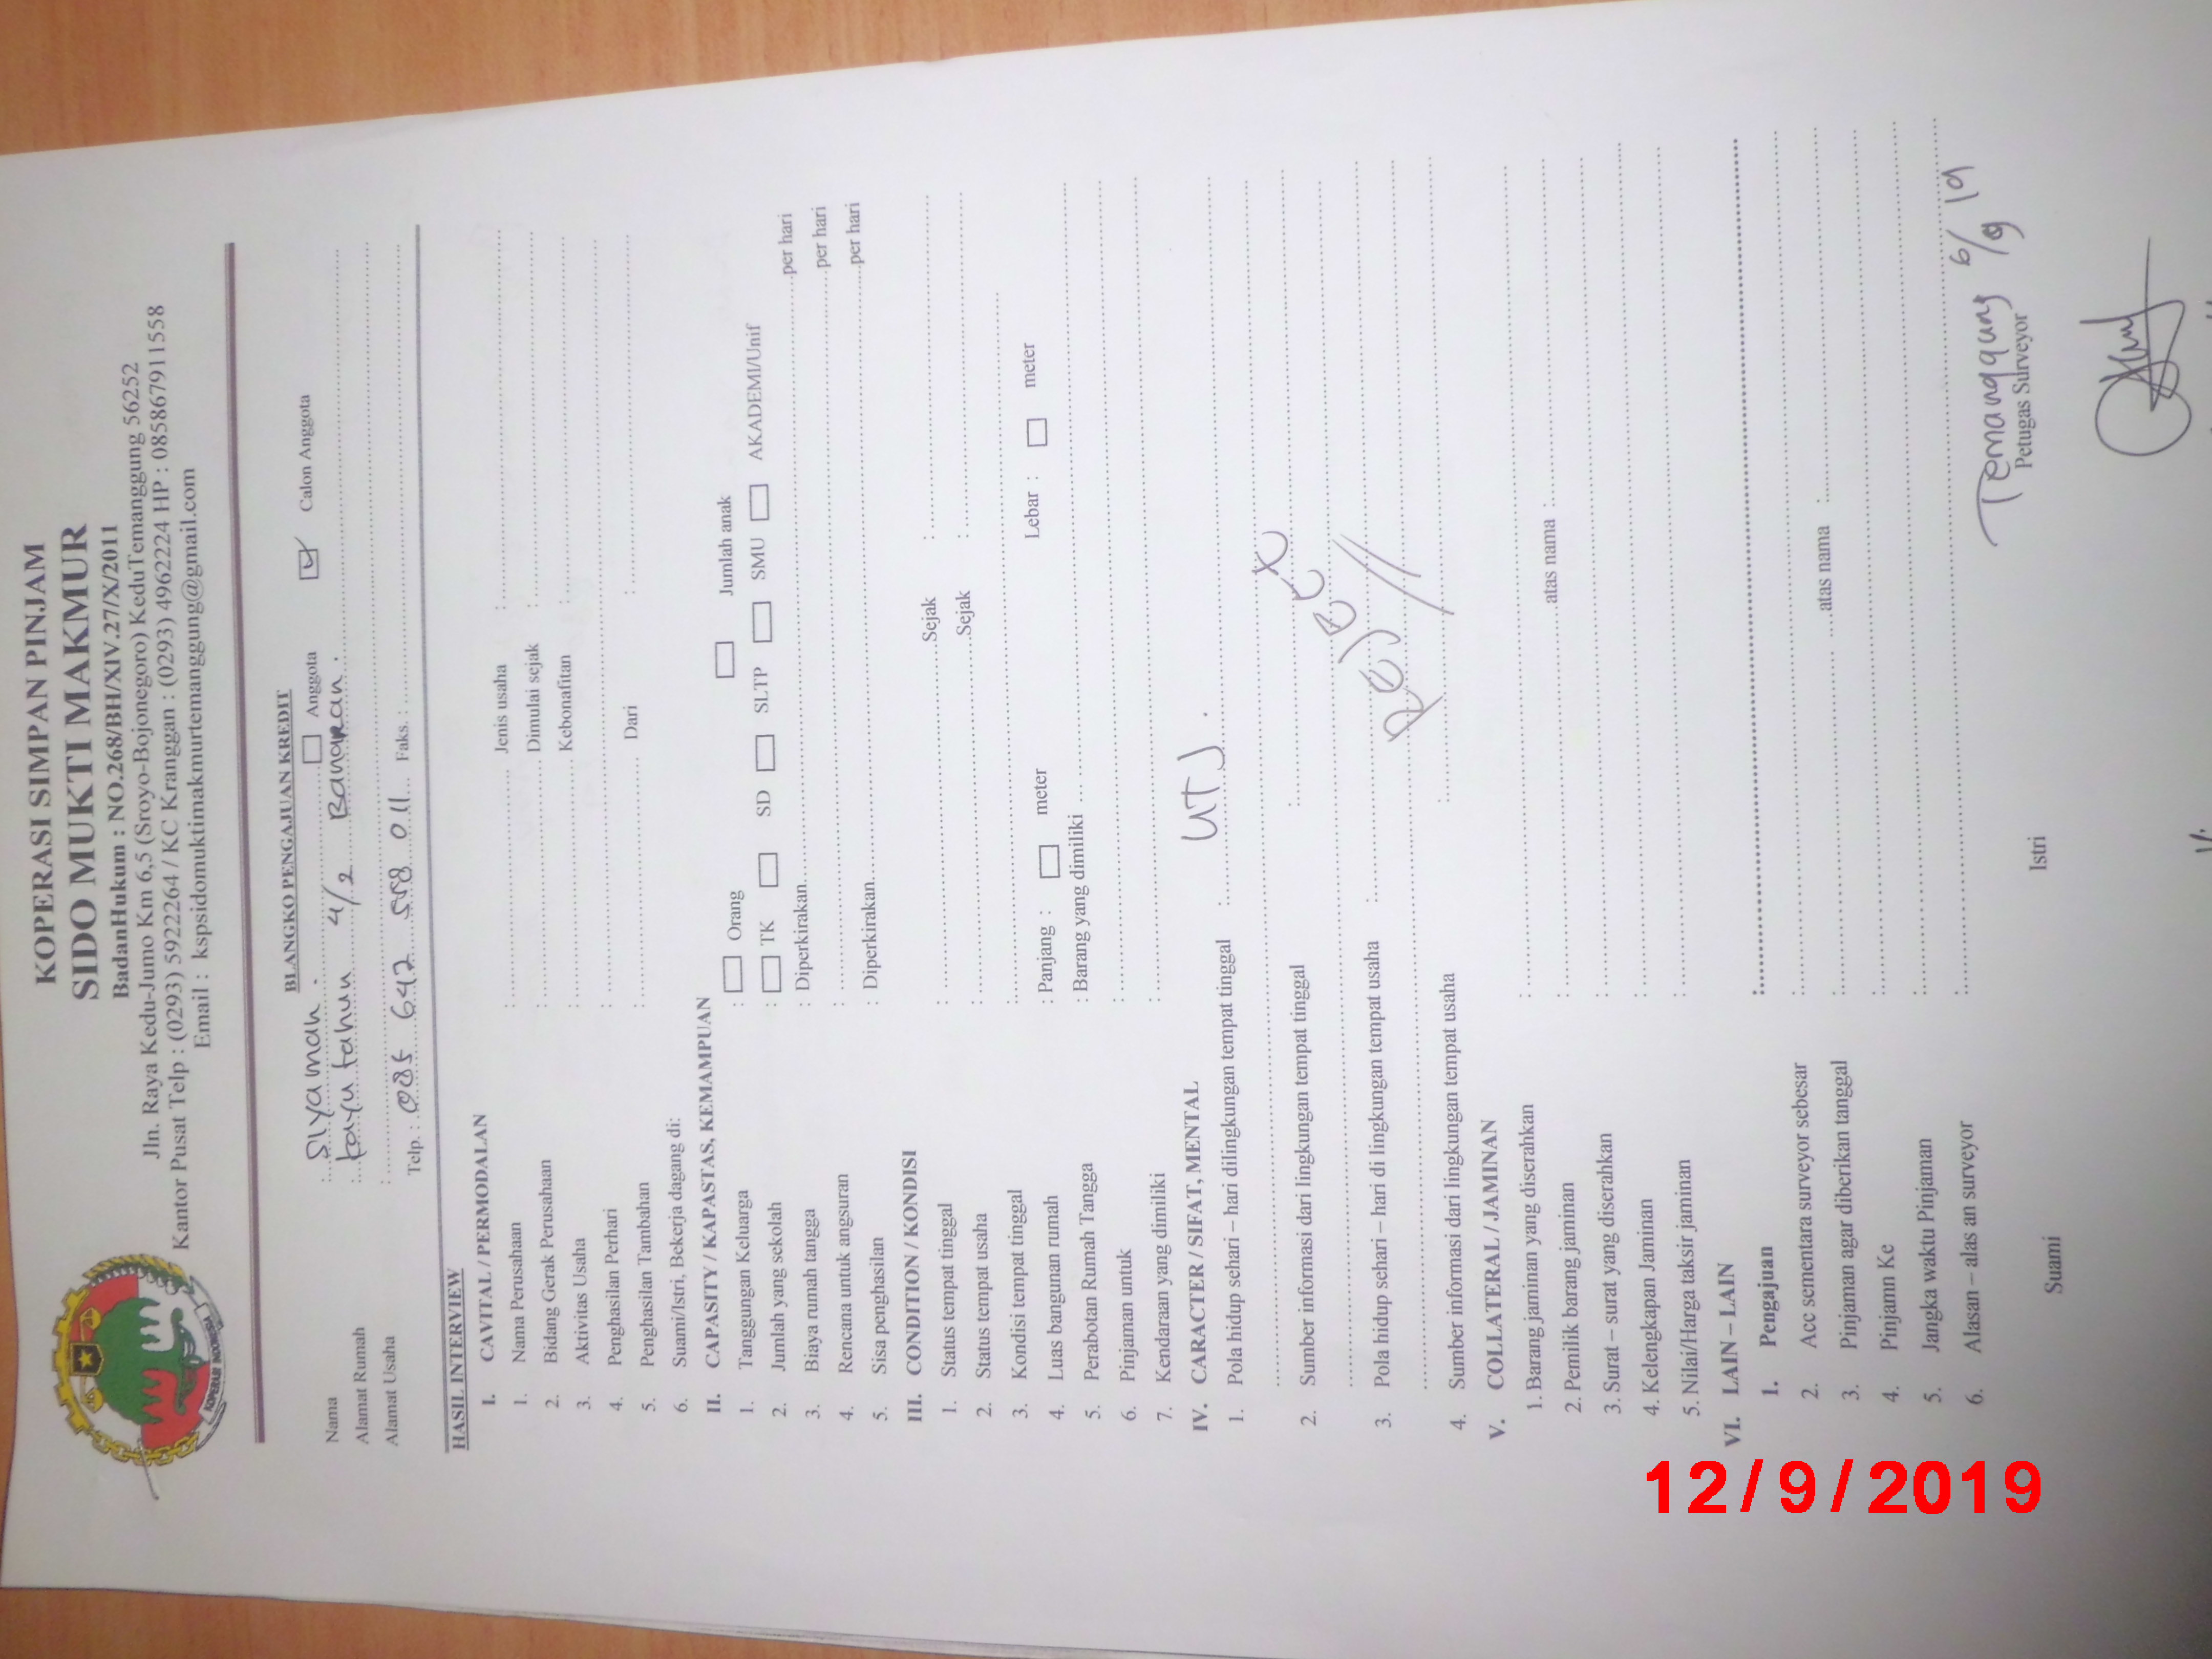 KOPERASI SIMPAN PINJAM
SIDO MUKTI MAKMUR
BadanHukum : NO.268/BH/XIV.27/X/2011
Jln. Raya Kedu-Jumo Km 6,5 (Sroyo-Bojonegoro) KeduTemanggung 56252
Kantor Pusat Telp : (0293) 5922264 / KC Kranggan : (0293) 4962224 HP : 085867911558
Email : kspsidomuktimakmurtemanggung@gmail.com
KOPERASI INDONESIA
BLANGKO PENGAJUAN KREDIT
Nama : Siyamah . Anggota Calon Anggota
Alamat Rumah : kayu tahun 4/2 Banaran .
Alamat Usaha :
Telp. : 085 642 558 011 Faks. :
HASIL INTERVIEW
I. CAVITAL / PERMODALAN
1. Nama Perusahaan : Jenis usaha :
2. Bidang Gerak Perusahaan : Dimulai sejak :
3. Aktivitas Usaha : Kebonafitan :
4. Penghasilan Perhari :
5. Penghasilan Tambahan : Dari :
6. Suami/Istri, Bekerja dagang di:
II. CAPASITY / KAPASTAS, KEMAMPUAN
1. Tanggungan Keluarga : Orang Jumlah anak
2. Jumlah yang sekolah : TK SD SLTP SMU AKADEMI/Unif
3. Biaya rumah tangga : Diperkirakan per hari
4. Rencana untuk angsuran : per hari
5. Sisa penghasilan : Diperkirakan per hari
III. CONDITION / KONDISI
1. Status tempat tinggal : Sejak :
2. Status tempat usaha : Sejak :
3. Kondisi tempat tinggal :
4. Luas bangunan rumah : Panjang : meter Lebar : meter
5. Perabotan Rumah Tangga : Barang yang dimiliki
6. Pinjaman untuk :
7. Kendaraan yang dimiliki :
IV. CARACTER / SIFAT, MENTAL
1. Pola hidup sehari – hari dilingkungan tempat tinggal : UTJ .
2. Sumber informasi dari lingkungan tempat tinggal :
3. Pola hidup sehari – hari di lingkungan tempat usaha :
4. Sumber informasi dari lingkungan tempat usaha :
V. COLLATERAL / JAMINAN
1. Barang jaminan yang diserahkan :
2. Pemilik barang jaminan : atas nama :
3. Surat – surat yang diserahkan :
4. Kelengkapan Jaminan :
5. Nilai/Harga taksir jaminan :
VI. LAIN – LAIN
1. Pengajuan :
2. Acc sementara surveyor sebesar :
3. Pinjaman agar diberikan tanggal : atas nama :
4. Pinjamn Ke :
5. Jangka waktu Pinjaman :
6. Alasan – alas an surveyor :
Temanggung 6/9 19
Suami Istri Petugas Surveyor
12/9/2019